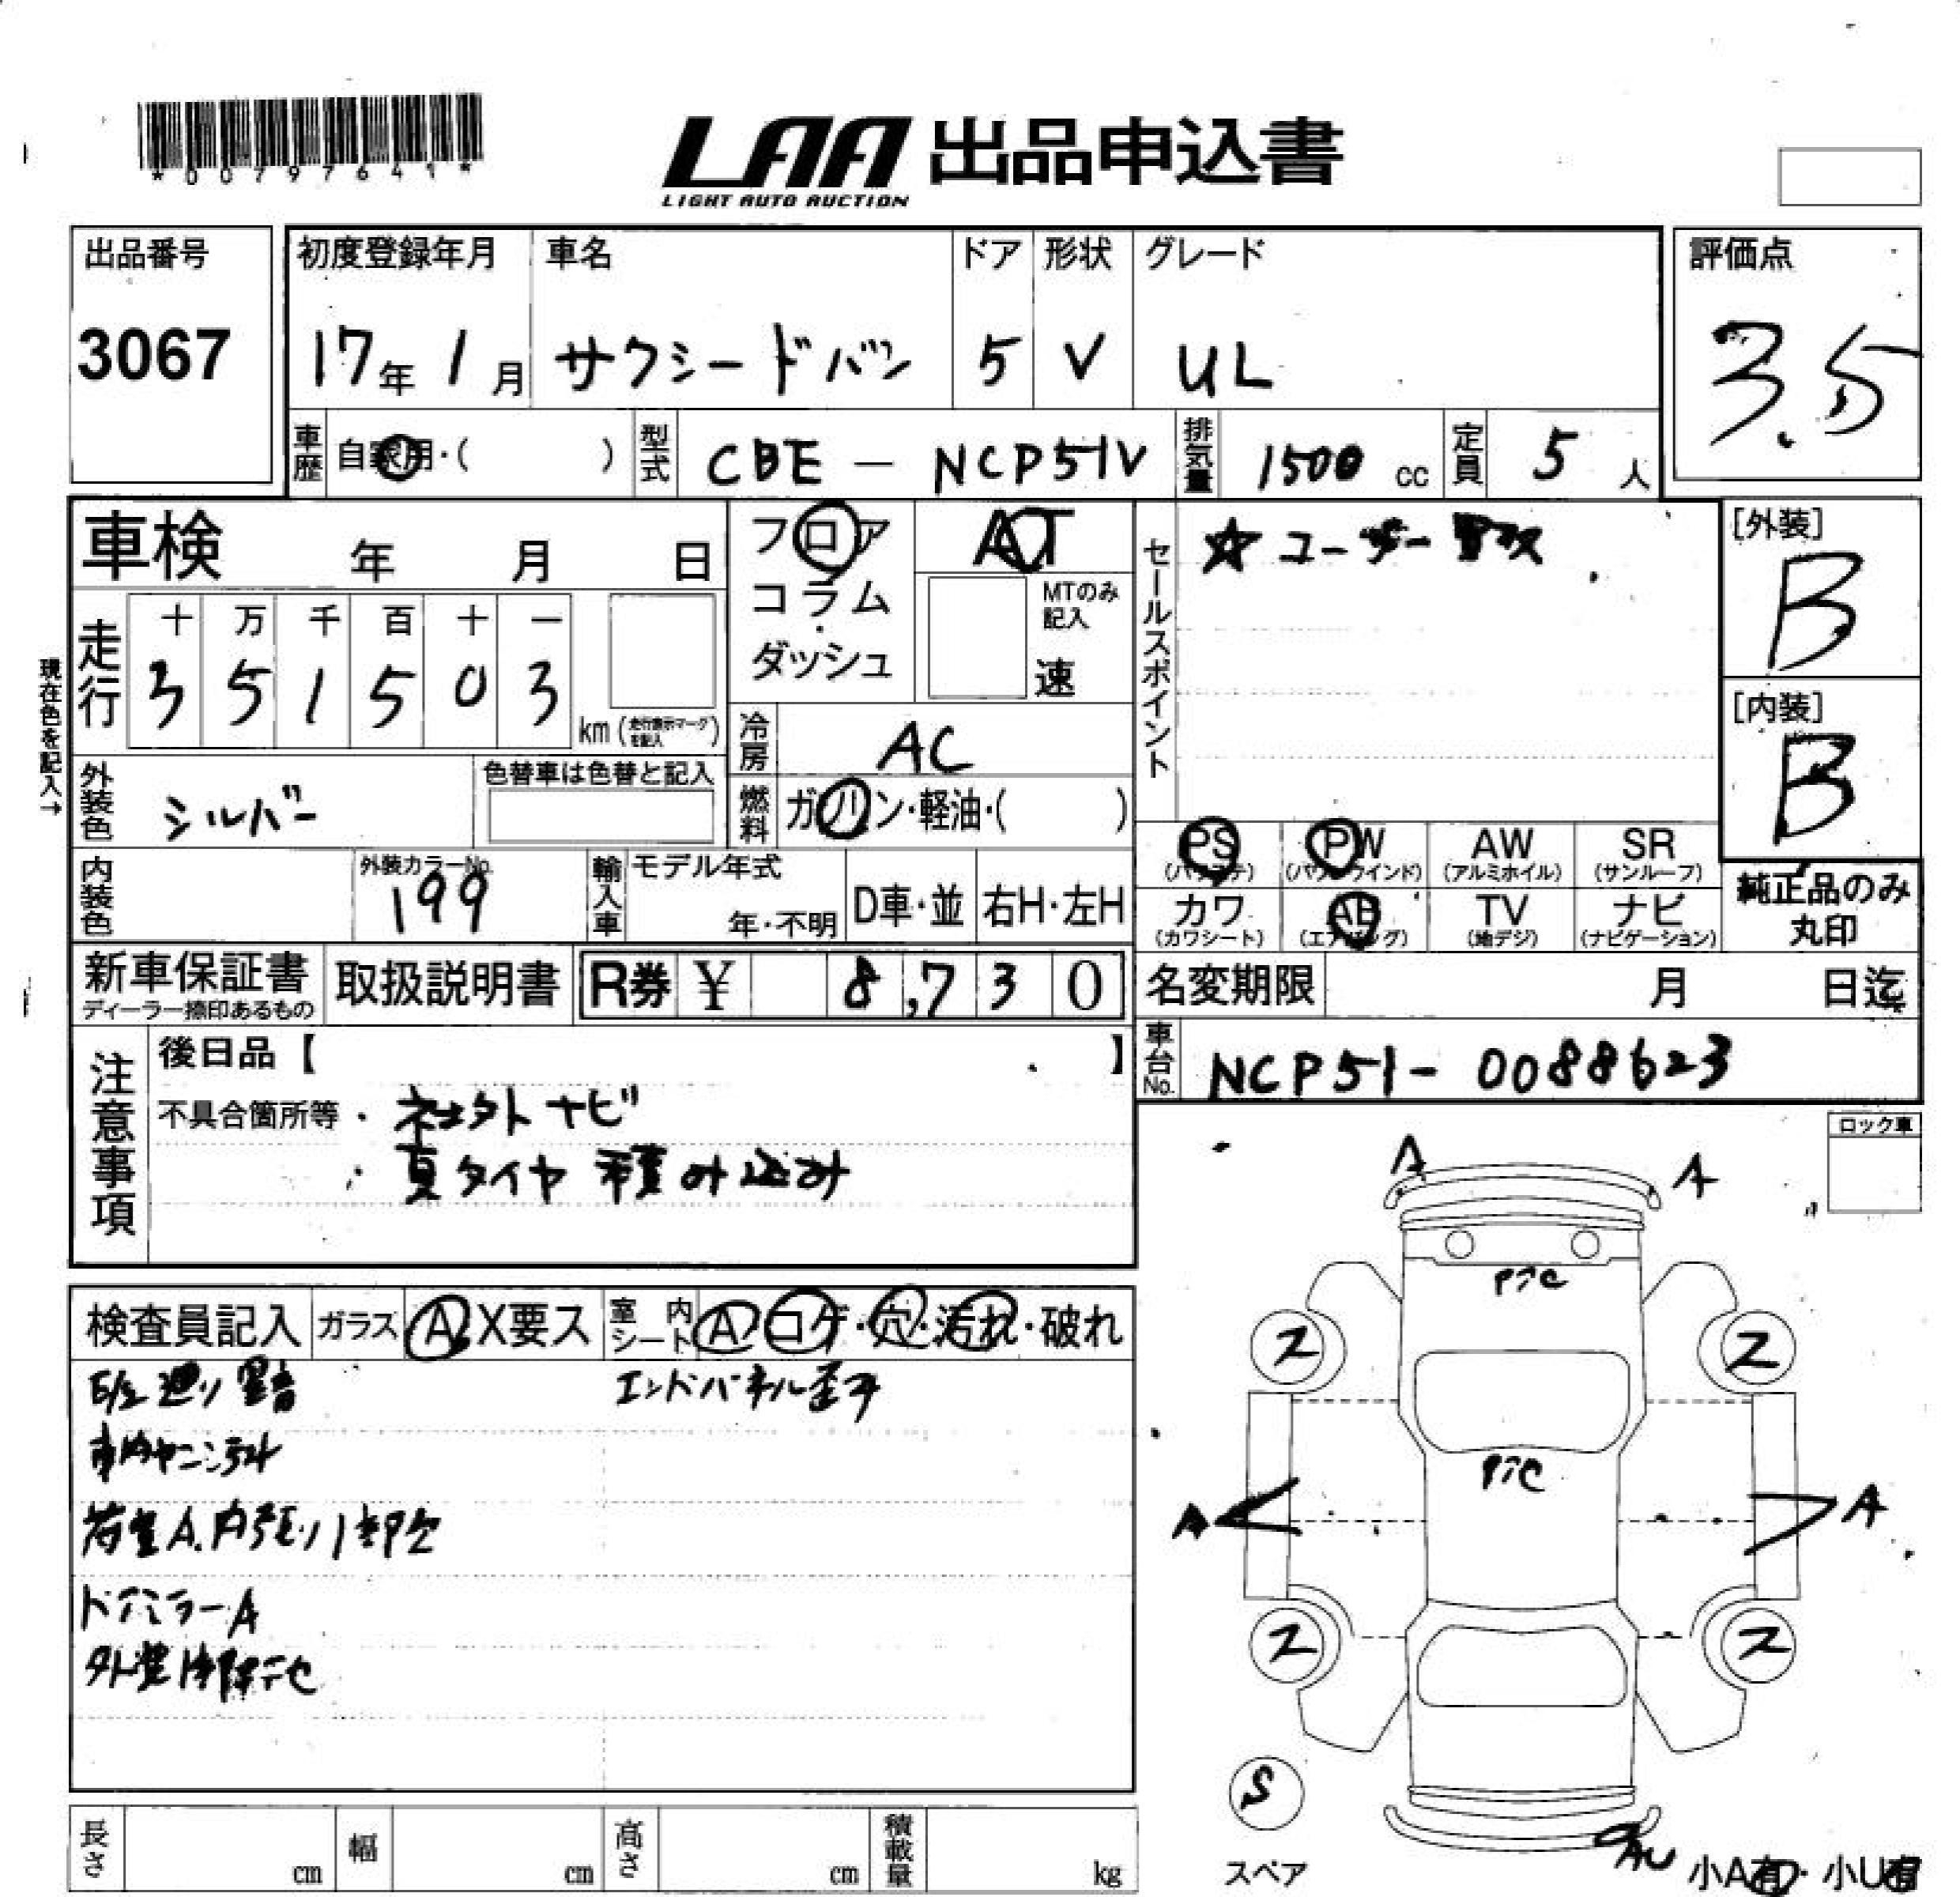 *00797641*
LAA 出品申込書
LIGHT AUTO AUCTION
出品番号
3067
初度登録年月
17年 1月
車名
サクシードバン
ドア
5
形状
V
グレード
UL
評価点
3.5
車歴
自家用・( )
型式
CBE - NCP51V
排気量
1500 cc
定員
5 人
車検 年 月 日
現在色を記入→
走行
十 万 千 百 十 一
3 5 1 5 0 3
km (走行表示マークを記入)
フロア
コラム
ダッシュ
AT
MTのみ
記入
速
冷房
AC
燃料
ガソリン・軽油・( )
外装色
シルバー
色替車は色替と記入
内装色
外装カラーNo.
199
輸入車
モデル年式
年・不明
D車・並
右H・左H
セールスポイント
☆ユーザー
[外装]
B
[内装]
B
PS
(パワステ)
PW
(パワーウインド)
AW
(アルミホイル)
SR
(サンルーフ)
カワ
(カワシート)
AB
(エアバッグ)
TV
(地デジ)
ナビ
(ナビゲーション)
純正品のみ
丸印
新車保証書
ディーラー捺印あるもの
取扱説明書
R券 ¥ 8,730
名変期限 月 日迄
車台No.
NCP51-0088623
注意事項
後日品【 】
不具合箇所等・社外ナビ
・夏タイヤ 積み込み
検査員記入
ガラス A X要ス
室内
シート
A・コゲ・穴・汚れ・破れ
E/g廻り異音
エンドパネル歪み
荷室A.内張り1部欠
ドアミラーA
ロック車
A
A
ス
ス
A
A
ス
ス
S
スペア
AU
小A有・小U有
長さ cm
幅 cm
高さ cm
積載量 kg